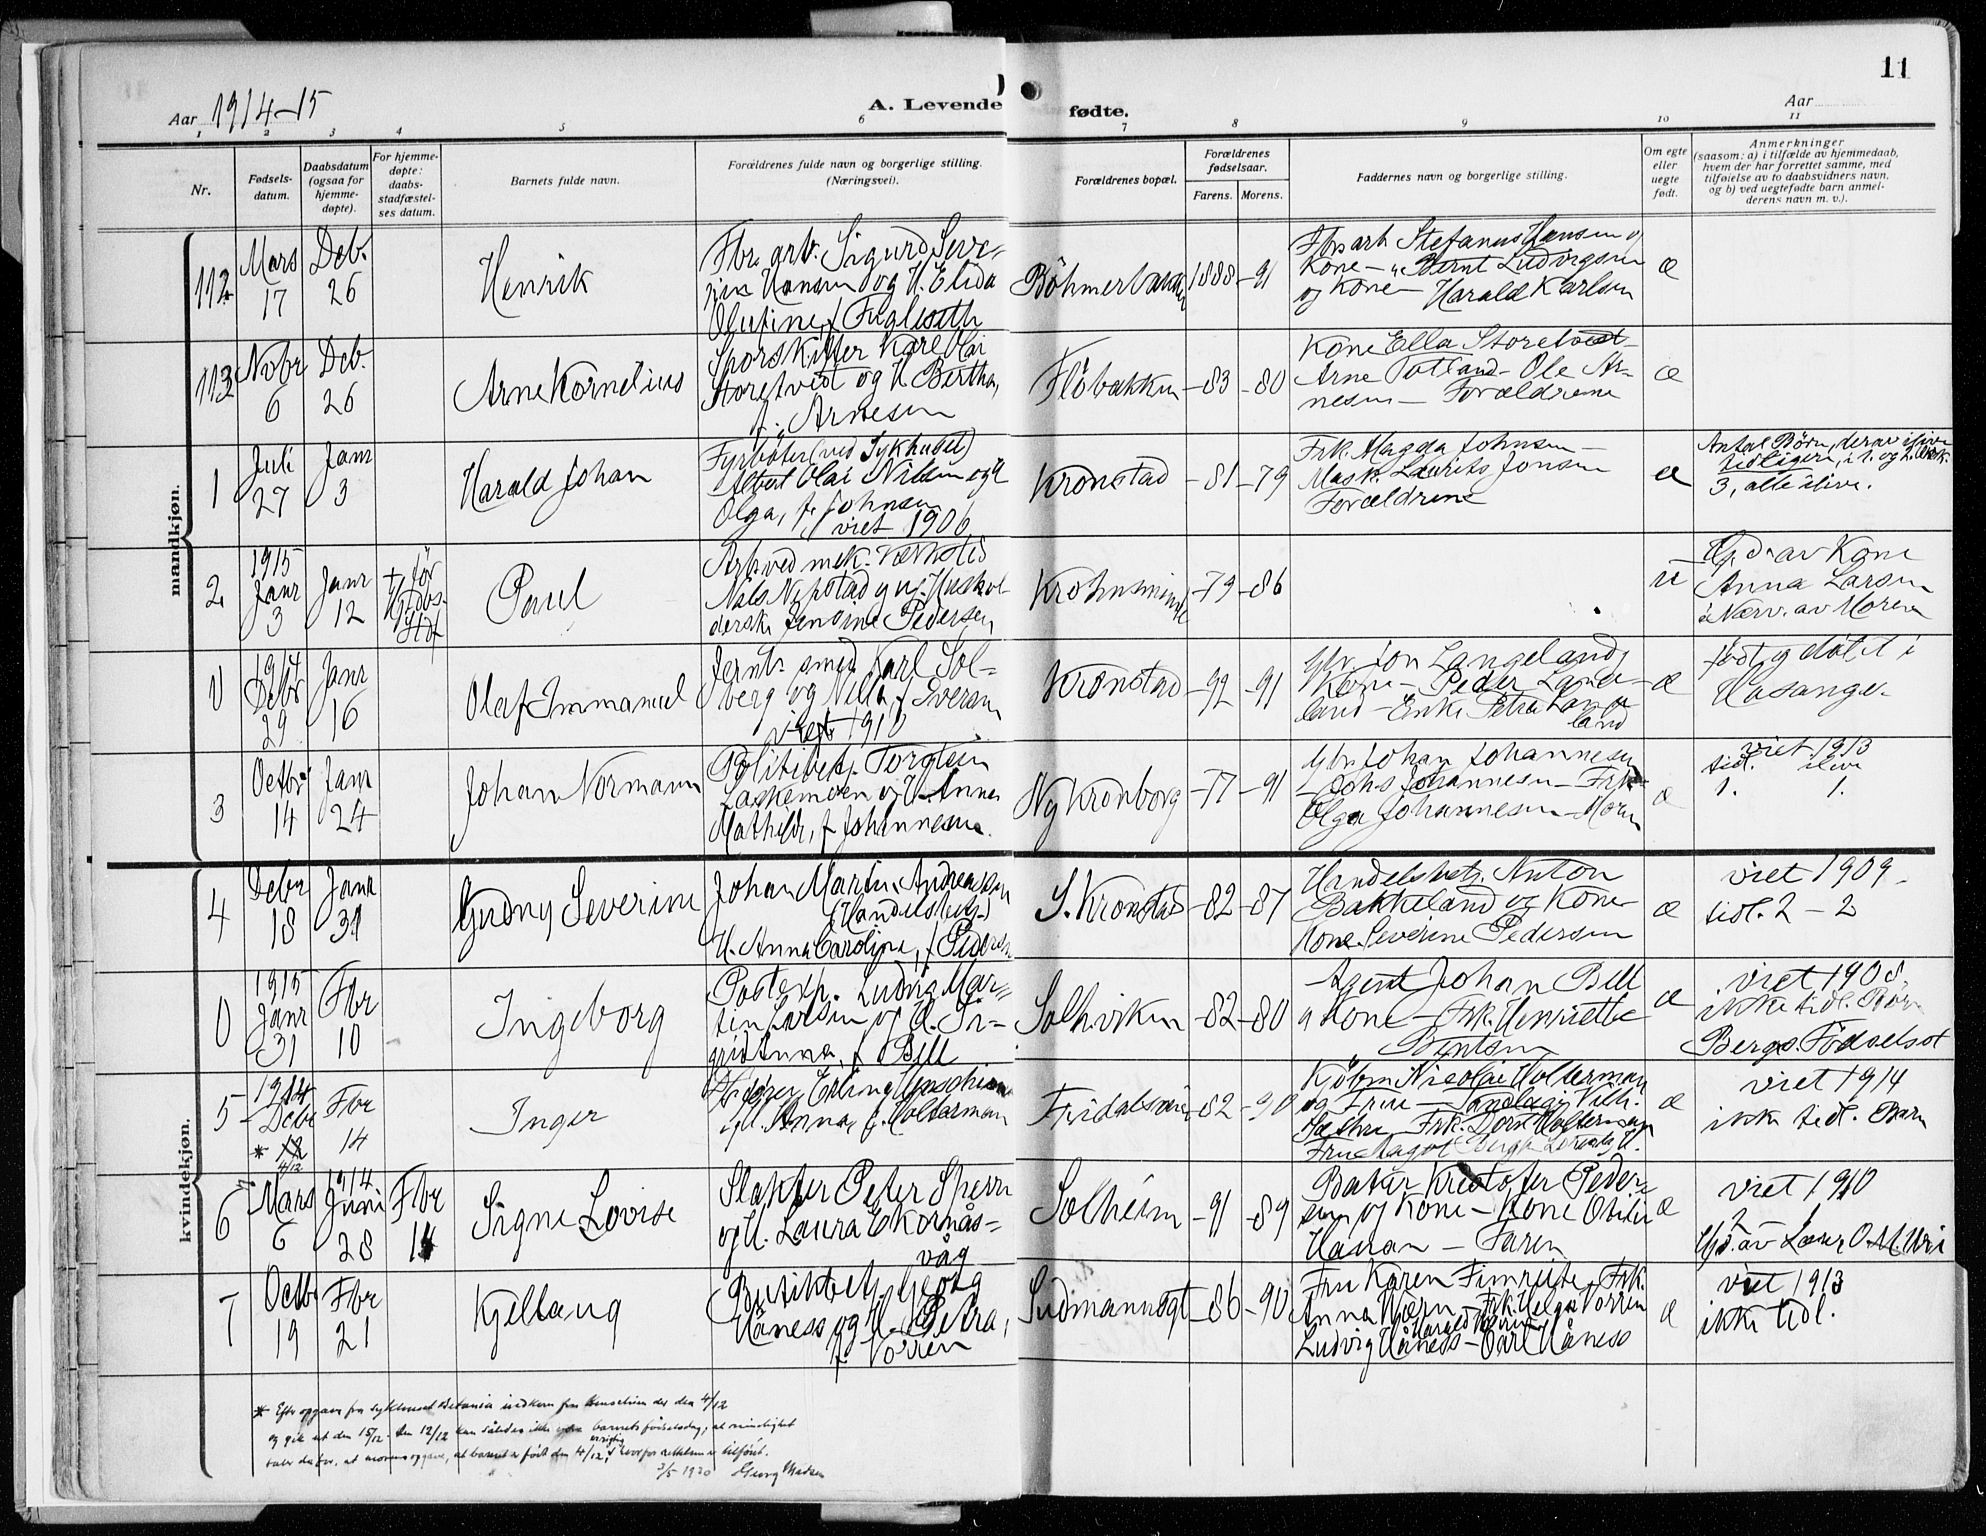 11
Aar 1914-15
A. Levende fødte.
Aar
1 2 3 4 5 6 7 8 9 10 11
Nr.
Fødsels-
datum.
Daabsdatum
(ogsaa for
hjemme-
døpte).
For hjemme-
døpte:
daabs-
stadfæstel-
ses datum.
Barnets fulde navn.
Forældrenes fulde navn og borgerlige stilling.
(Næringsvei).
Forældrenes bopæl.
Forældrenes
fødselsaar.
Farens. Morens.
Faddernes navn og borgerlige stilling.
Om egte
eller
uegte
født.
Anmerkninger
(saasom: a) i tilfælde av hjemmedaab,
hvem der har forrettet samme, med
tilføielse av to daabsvidners navn,
og b) ved uegtefødte barn anmel-
derens navn m. v.).
mandkjøn.
112
Mars
17
Deb.
26
Henrik
Fbr. arb. Sigurd Seve-
rin Hansen og H. Elida
Olufine, f. Fuglseth
1888 -91
Fbr. arb Stefanus Hansen og
Kone - " Bernt Ludvigsen
og Kone - Harald Karlsen
æ
113
Nvbr
6
Deb.
26
Arne Kornelius
Sporskifter Karl Olai
Storetvedt og H. Bertha,
f. Arnesen
Fløbakken -83 -80
Kone Ella Storetvedt -
Arne Totland - Ole Ar-
nesen - Forældrene
æ
1
Juli
27
Janr
3
Harald Johan
Fyrbøter (ved Sykhuset)
Albert Olai Nilsen og H
Olga, f. Johnsen
viet 1906
Kronstad -81 -79
Frk. Magda Johnsen -
Mask. Laurits Jonsen
Forældrene
æ
Antal Børn, derav ilive
tidligere, i 1. og 2. Ekt.
3, alle ilive.
2
1915
Janr
3
Janr
12
Paul
Arb. ved mek. Værksted
Nils Nypstad og ug. Huskol-
derske Jensine Pedersen
Krohnsminde -79 -86
u
Gd. av Kone
Anna Larsen
i Nærv. av Moren
0
1914
Debr
29
Janr
16
Olaf Immanuel
Jernb. smed Karl Sol-
berg og Nilla, f. Iversen
viet 1910
Kronstad -92 -91
Gbr. Jon Langeland,
Kone - Peder Lange-
land - Enke Petra Lange-
land
æ
født og døbt i
Hosanger
3
Octbr
14
Janr
24
Johan Normann
Politibetj. Torstein
Laskemoen og H. Anna
Mathilde, f. Johannesen.
Ny Kronborg -77 -91
Gbr. Johan Johannesen
- Johs Johannesen - Frk.
Olga Johannesen - Moren
æ
viet 1913
tidl. ilive
1. 1.
kvindekjøn.
4
Debr
18
Janr
31
Gudny Severine
Johan Martin Andreassen
(Handelsbetj.)
H. Anna Carolina, f. Pedersen
S. Kronstad -82 -87
Handelsbetj. Anton
Bakkeland og Kone -
Kone Severine Pedersen
æ
viet 1909 -
tidl. 2 - 2
0
1915
Janr
31
Fbr
10
Ingeborg
Postexp. Ludvig Mar-
tin Larsen og H. In-
grid Anna, f. Bell
Solhviken -82 -80
Agent Johan Bell
og Kone - Frk. Henriette
Bentsen
æ
viet 1908.
ikke tidl. Børn
Bergs. Fødselsst
5
1914
Debr
* 12
4/12
Fbr
14
Inger
og H. Anna, f. Holterman
Fridalsveien -82 -90
Kjøbm Nicolai Holterman
og Frue -
Frk. Dora Holterman
æ
viet 1914
ikke tidl. Barn
6
Mars
6
1914
Juni
28
Fbr
14
Signe Lovise
Slakter Peter
og H. Laura Ekornås-
våg
Solheim -91 -89
Baker Kristofer Peder-
sen og Kone - Kone
Faren
æ
viet 1910
2
Gd. av
7
Octbr
19
Fbr
21
Kjellaug
Butikbetj. Georg
Håness og H. Petra,
f. Norren
Sudmannsgt -86 -90
Fru Karen Fimreite Frk.
Anna Frk. Helga Norren
Ludvig Håness - Carl Håness
æ
viet 1913
ikke tidl.
* Efter opgave fra sykehuset Betania indkom fru Henschien der den 4/12
og gik ut den 15/12. Den 12/12 kan således ikke være barnets fødselsdag, al rimelighet
taler derfor, at morens opgave, at barnet er født den 4/12, er rigtig, hvorfor rettelsen er tilført.
3/5 1920 Georg